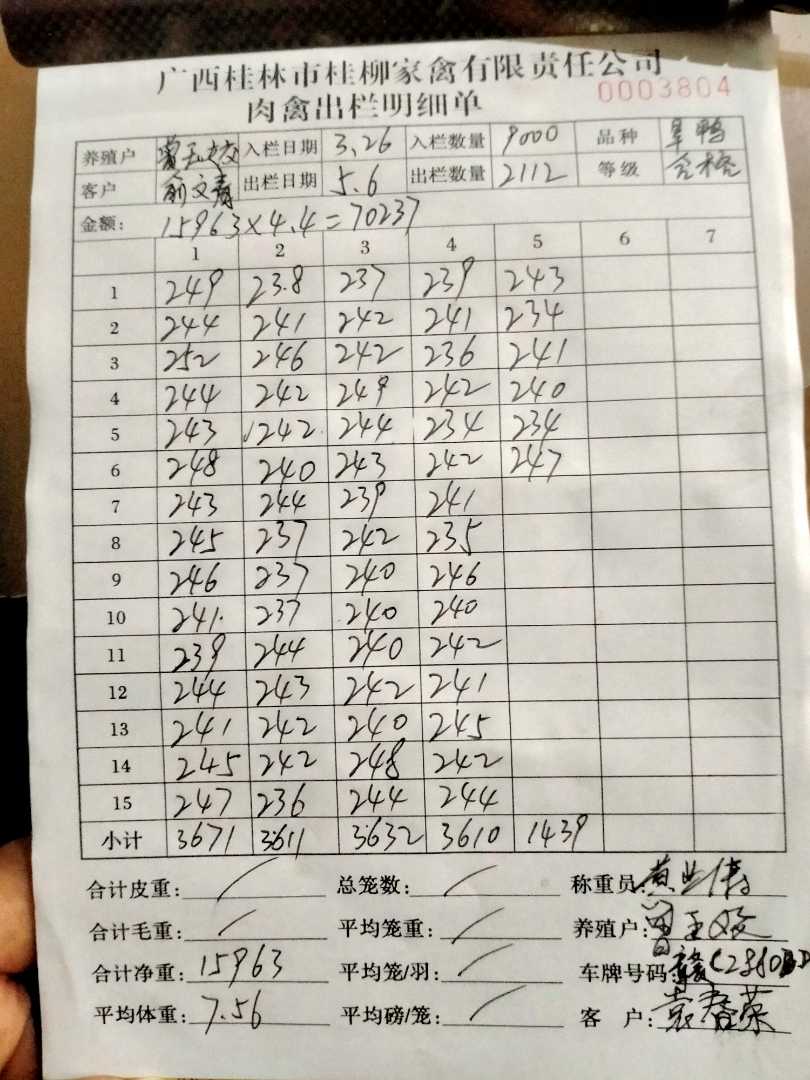 广西桂林市桂柳家禽有限责任公司
肉禽出栏明细单 0003804
养殖户 曾玉姣 入栏日期 3.26 入栏数量 9000 品种 旱鸭
客户 俞文青 出栏日期 5.6 出栏数量 2112 等级 合格
金额: 15963×4.4=70237
1 2 3 4 5 6 7
1 249 23.8 237 239 243
2 244 241 242 241 234
3 252 246 242 236 241
4 244 242 249 242 240
5 243 242 244 234 234
6 248 240 243 242 247
7 243 244 239 241
8 245 237 242 235
9 246 237 240 246
10 241 237 240 240
11 239 244 240 242
12 244 243 242 241
13 241 242 240 245
14 245 242 248 242
15 247 236 244 244
小计 3671 3611 3632 3610 1439
合计皮重: / 总笼数: / 称重员:
合计毛重: / 平均笼重: / 养殖户: 曾玉姣
合计净重: 15963 平均笼/羽: / 车牌号码:
平均体重: 7.56 平均磅/笼: / 客 户: 袁春荣